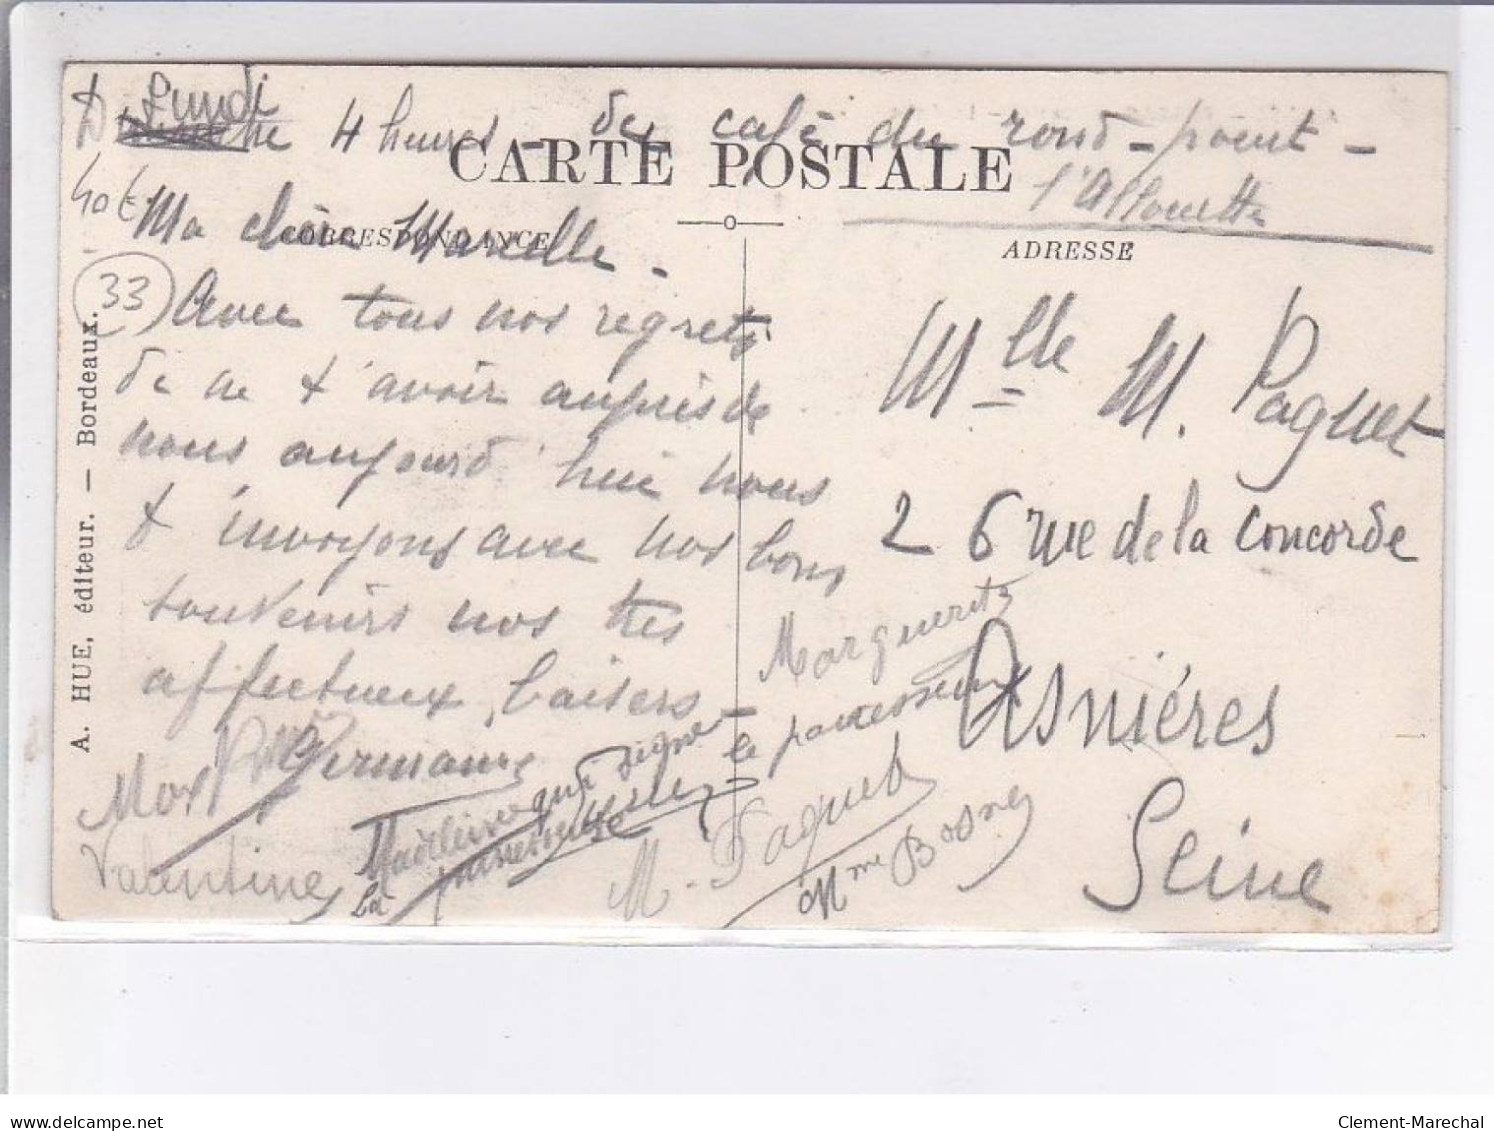 Lundi
Dimanche 4 heures - de café du rond-point -
l'Allouette
CARTE POSTALE
CORRESPONDANCE
ADRESSE
40t
33
A. HUE, éditeur. — Bordeaux.
Ma chère Marcelle -
Avec tous nos regrets
de ne t'avoir auprès de
nous aujourd'hui nous
t'envoyons avec nos bons
souvenirs nos très
affectueux baisers -
Germaine
Valentine
Marguerite
qui signe
la
M. Paquet
Mme Bosne
Mlle M. Paquet
26 rue de la Concorde
Asnières
Seine
delcampe.net
Clement-Marechal